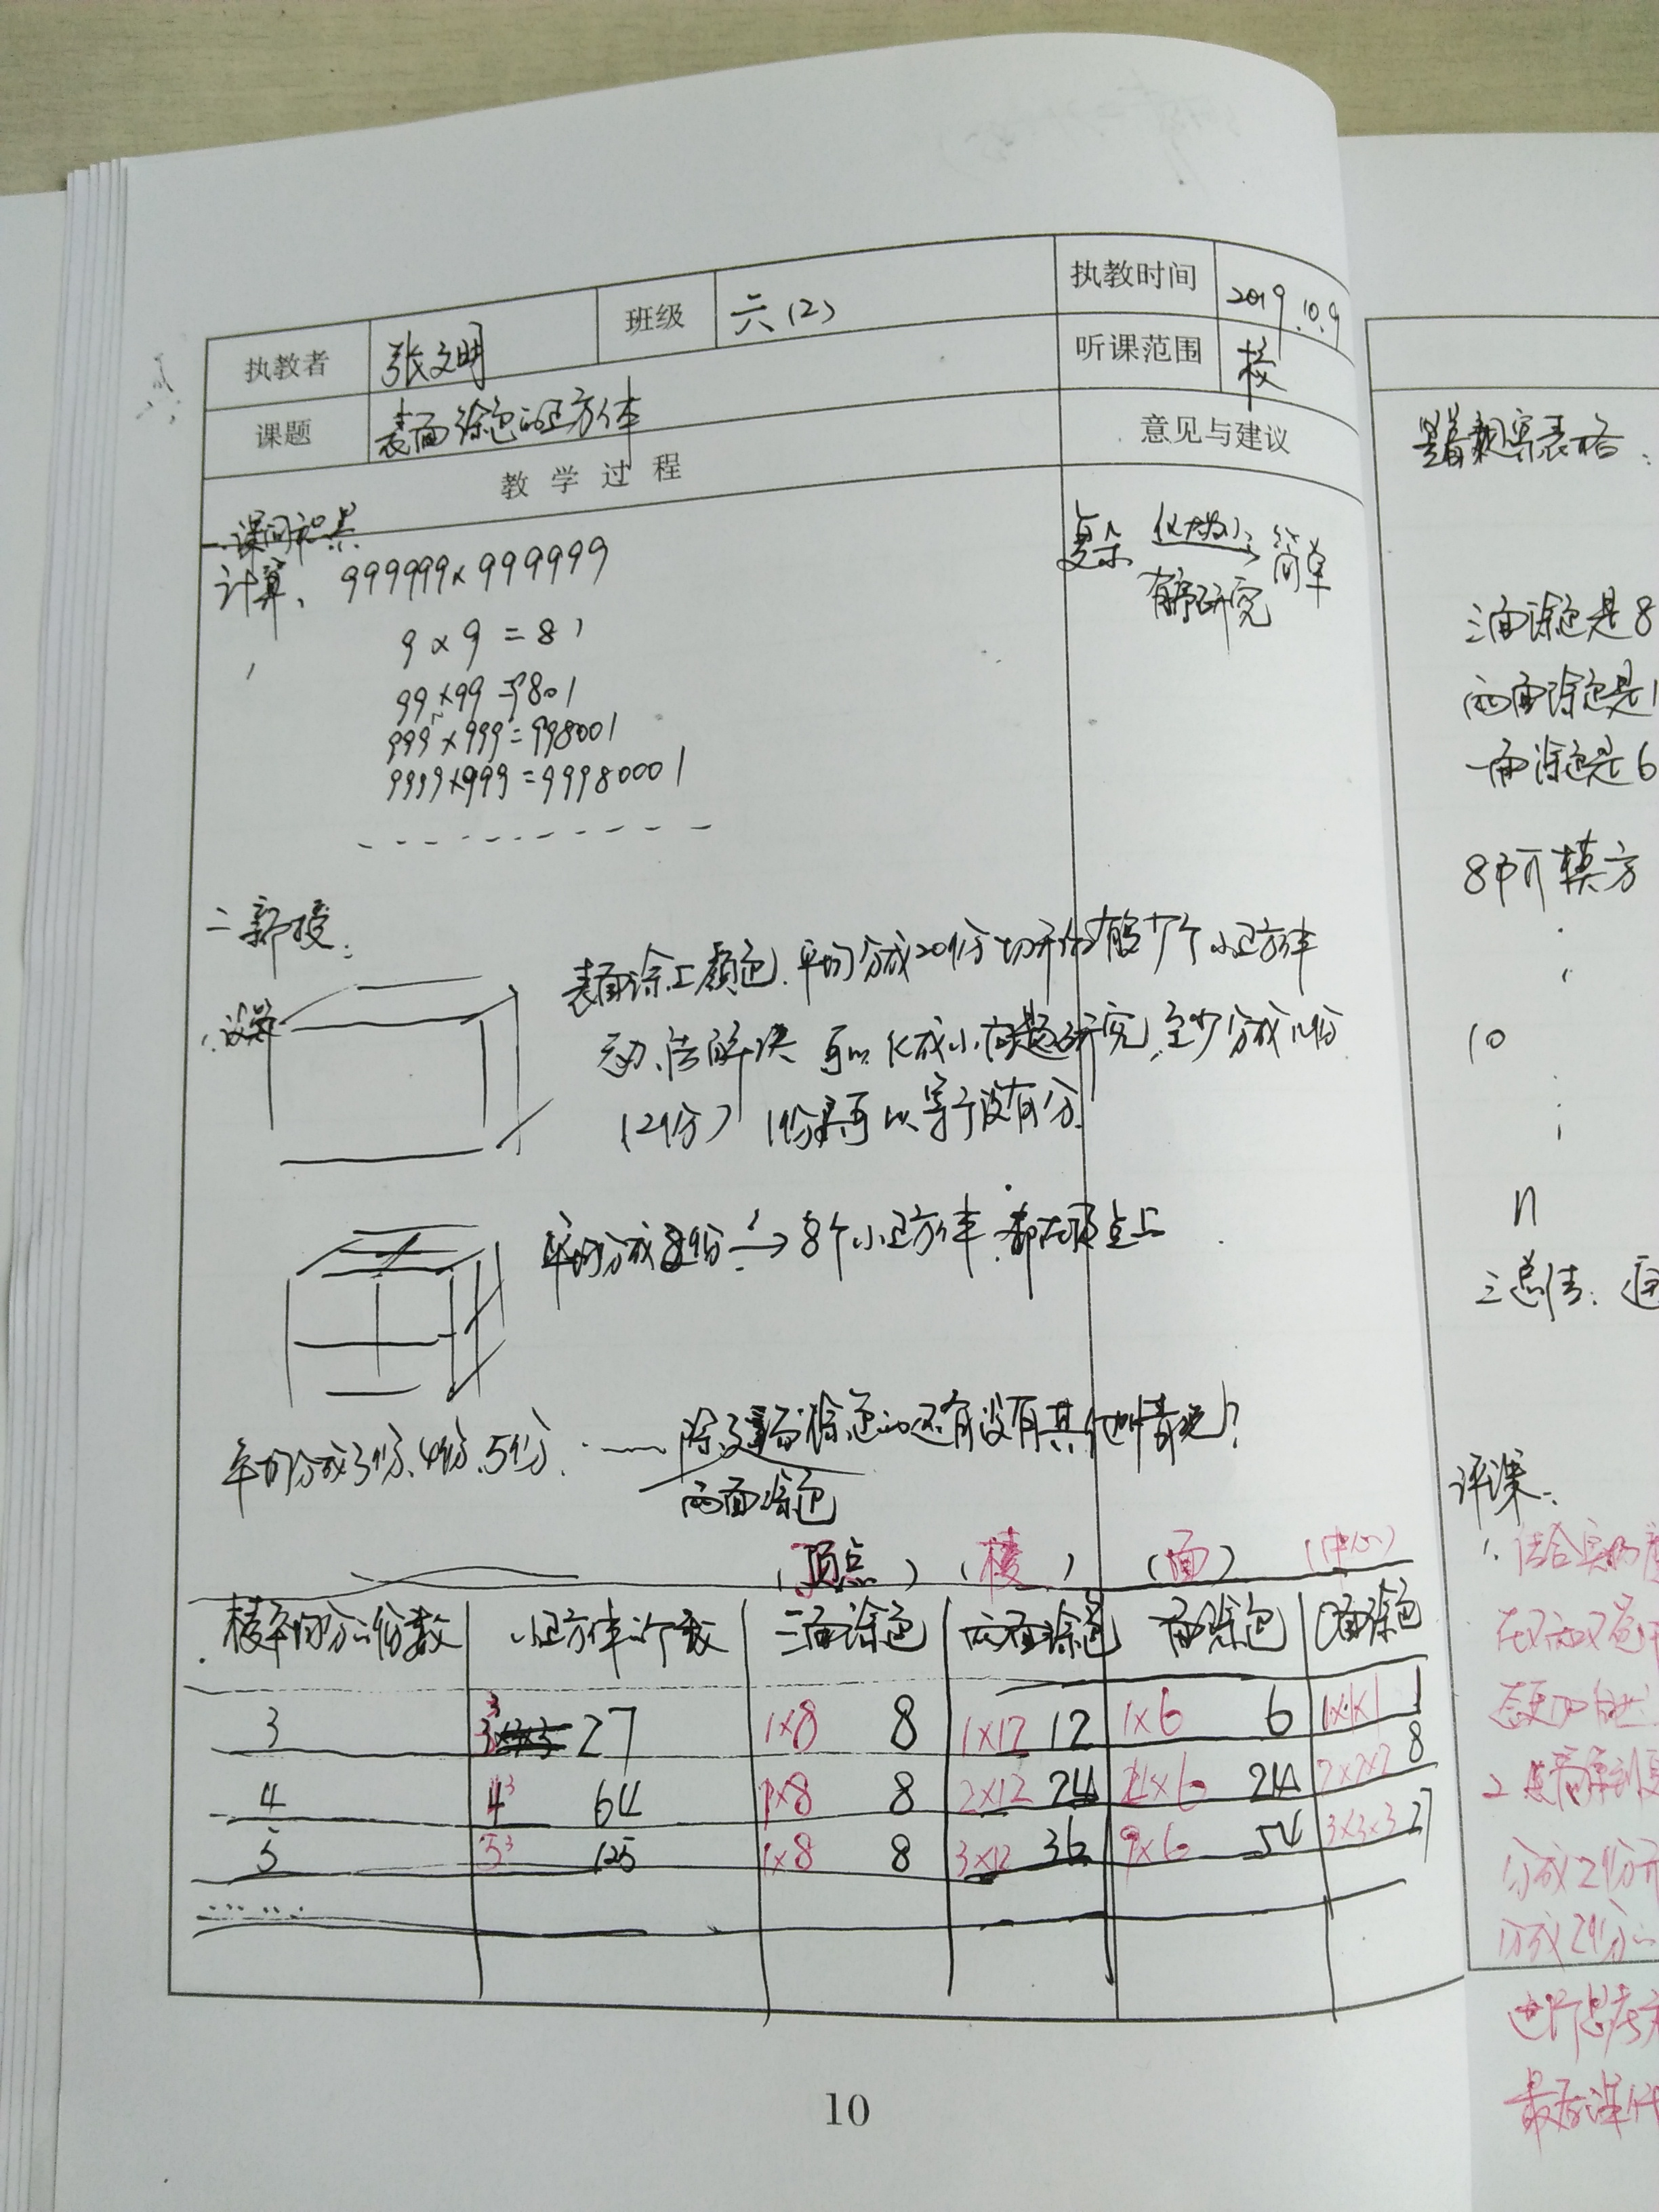 执教者 张文明 班级 六(2) 执教时间 2019.10.9
听课范围 校
课题 表面涂色的正方体
教学过程 意见与建议
一.课间
计算、999999×999999
9×9=81
99×99=9801
999×999=998001
9999×999=99980001
复杂 简单
有序研究
二新授:
表面涂上颜色,平均分成20份切开 有多少个小正方体
办法解决 可以化成小问题研究,至少分成几份
(2份) 1份 可以等于没有分
平均分成2份→8个小正方体,都在顶点上
平均分成3份、4份、5份……除了三面涂色的还有没有其他情况?
两面涂色
(顶点) (棱) (面) (中心)
棱平均分的份数 小正方体个数 三面涂色 两面涂色 一面涂色 0面涂色
3 3³ 27 1×8 8 1×12 12 1×6 6 1×1×1 1
4 4³ 64 1×8 8 2×12 24 4×6 24 2×2×2 8
5 5³ 125 1×8 8 3×12 36 9×6 54 3×3×3 27
……
10
观察表格:
三面涂色是8
两面涂色是1
一面涂色是6
8阶魔方
10
n
三总结:
评课:
1.结合实物
2.
分成2份
分成2份
进行思考
最后